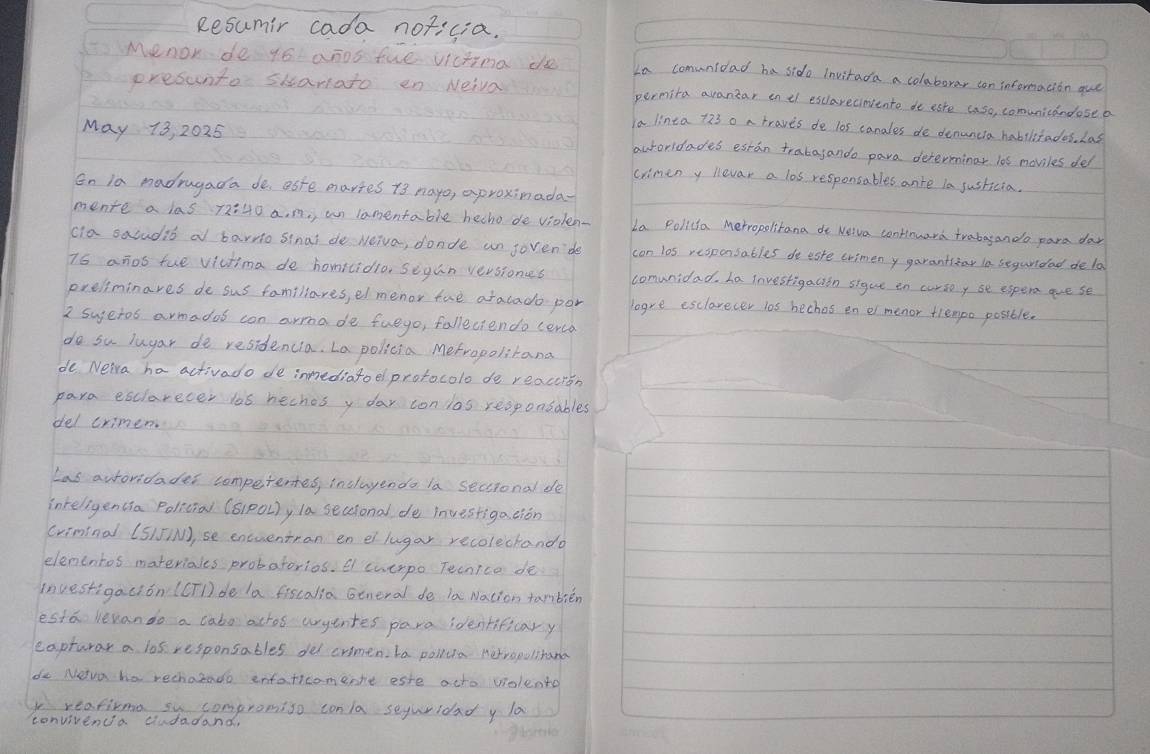 Resumir cada noticia.
Menor de 16 años fue victima de
presunto sicariato en Neiva
May 13, 2025
En la madrugada de, este martes 13 mayo, aproximada-
mente a las 12:40 a.m., un lamentable hecho de violen-
cia sacudió al barrio Sinai de Neiva, donde un joven de
16 años fue victima de homicidio. Según versiones
preliminares de sus familiares, el menor fue atacado por
2 sujetos armados con arma de fuego, falleciendo cerca
de su lugar de residencia. La policia Metropolitana
de Neiva ha activado de inmediato el protocolo de reacción
para esclarecer los hechos y dar con los responsables
del crimen.
Las autoridades competentes, incluyendo la seccional de
inteligencia Policial (SIPOL) y la seccional de investigación
Criminal (SIJIN), se encuentran en el lugar recolectando
elementos materiales probatorios. El cuerpo Tecnico de
investigación (CTI) de la fiscalia General de la Nacion también
está llevando a cabo actos urgentes para identificar y
capturar a los responsables del crimen. La policia metropolitana
de Neiva ha rechazado enfaticamente este acto violento
y reafirma su compromiso con la seguridad y la
convivencia ciudadana.
La comunidad ha sido invitada a colaborar con información que
permita avanzar en el esclarecimiento de este caso, comunicándose a
la linea 123 o a través de los canales de denuncia habilitados. Las
autoridades están trabajando para determinar los moviles del
crimen y llevar a los responsables ante la justicia.
La Policia Metropolitana de Neiva continuará trabajando para dar
con los responsables de este crimen y garantizar la seguridad de la
comunidad. La investigación sigue en curso y se espera que se
logre esclarecer los hechos en el menor tiempo posible.